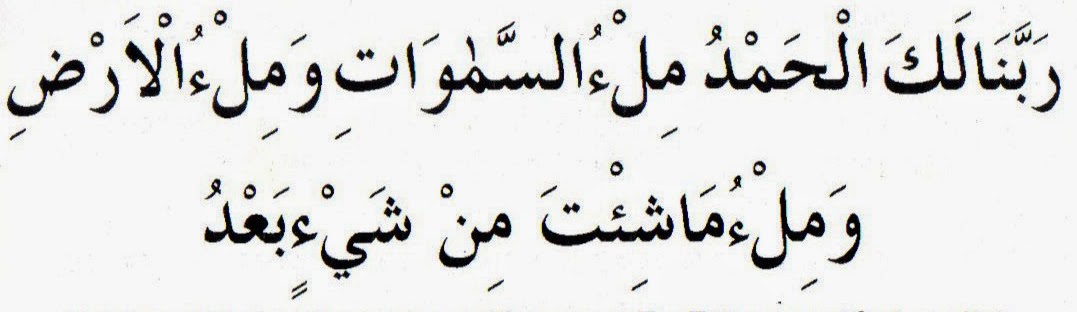 رَبَّنَا لَكَ الْحَمْدُ مِلْءُ السَّمٰوَاتِ وَمِلْءُ الْاَرْضِ
وَمِلْءُ مَاشِئْتَ مِنْ شَيْءٍ بَعْدُ